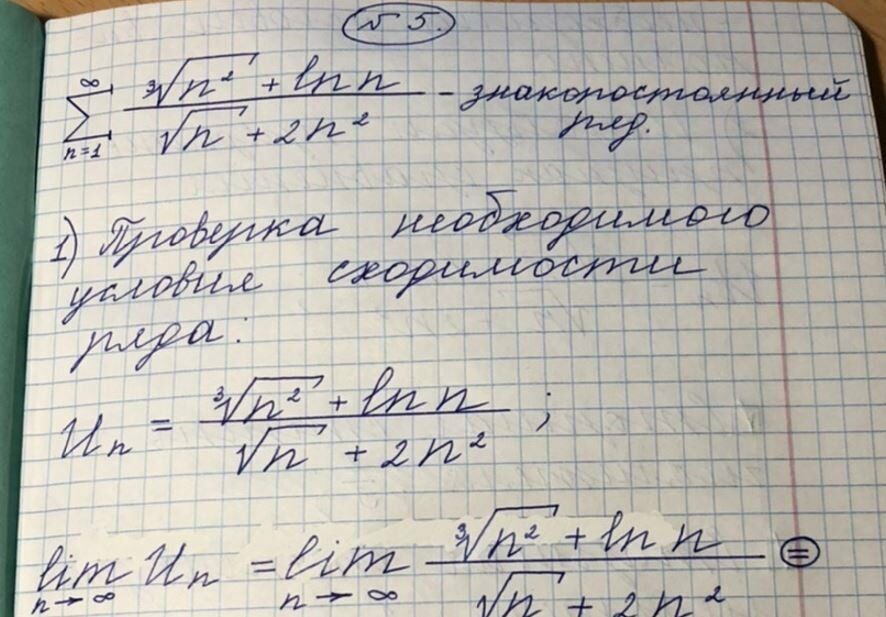 № 5.
∑_{n=1}^{∞} (∛(n²) + ln n)/(√n + 2n²) - знакопостоянный
ряд.
1) Проверка необходимого
условия сходимости
ряда:
Uₙ = (∛(n²) + ln n)/(√n + 2n²) ;
lim_{n→∞} Uₙ = lim_{n→∞} (∛(n²) + ln n)/(√n + 2n²) ⊜